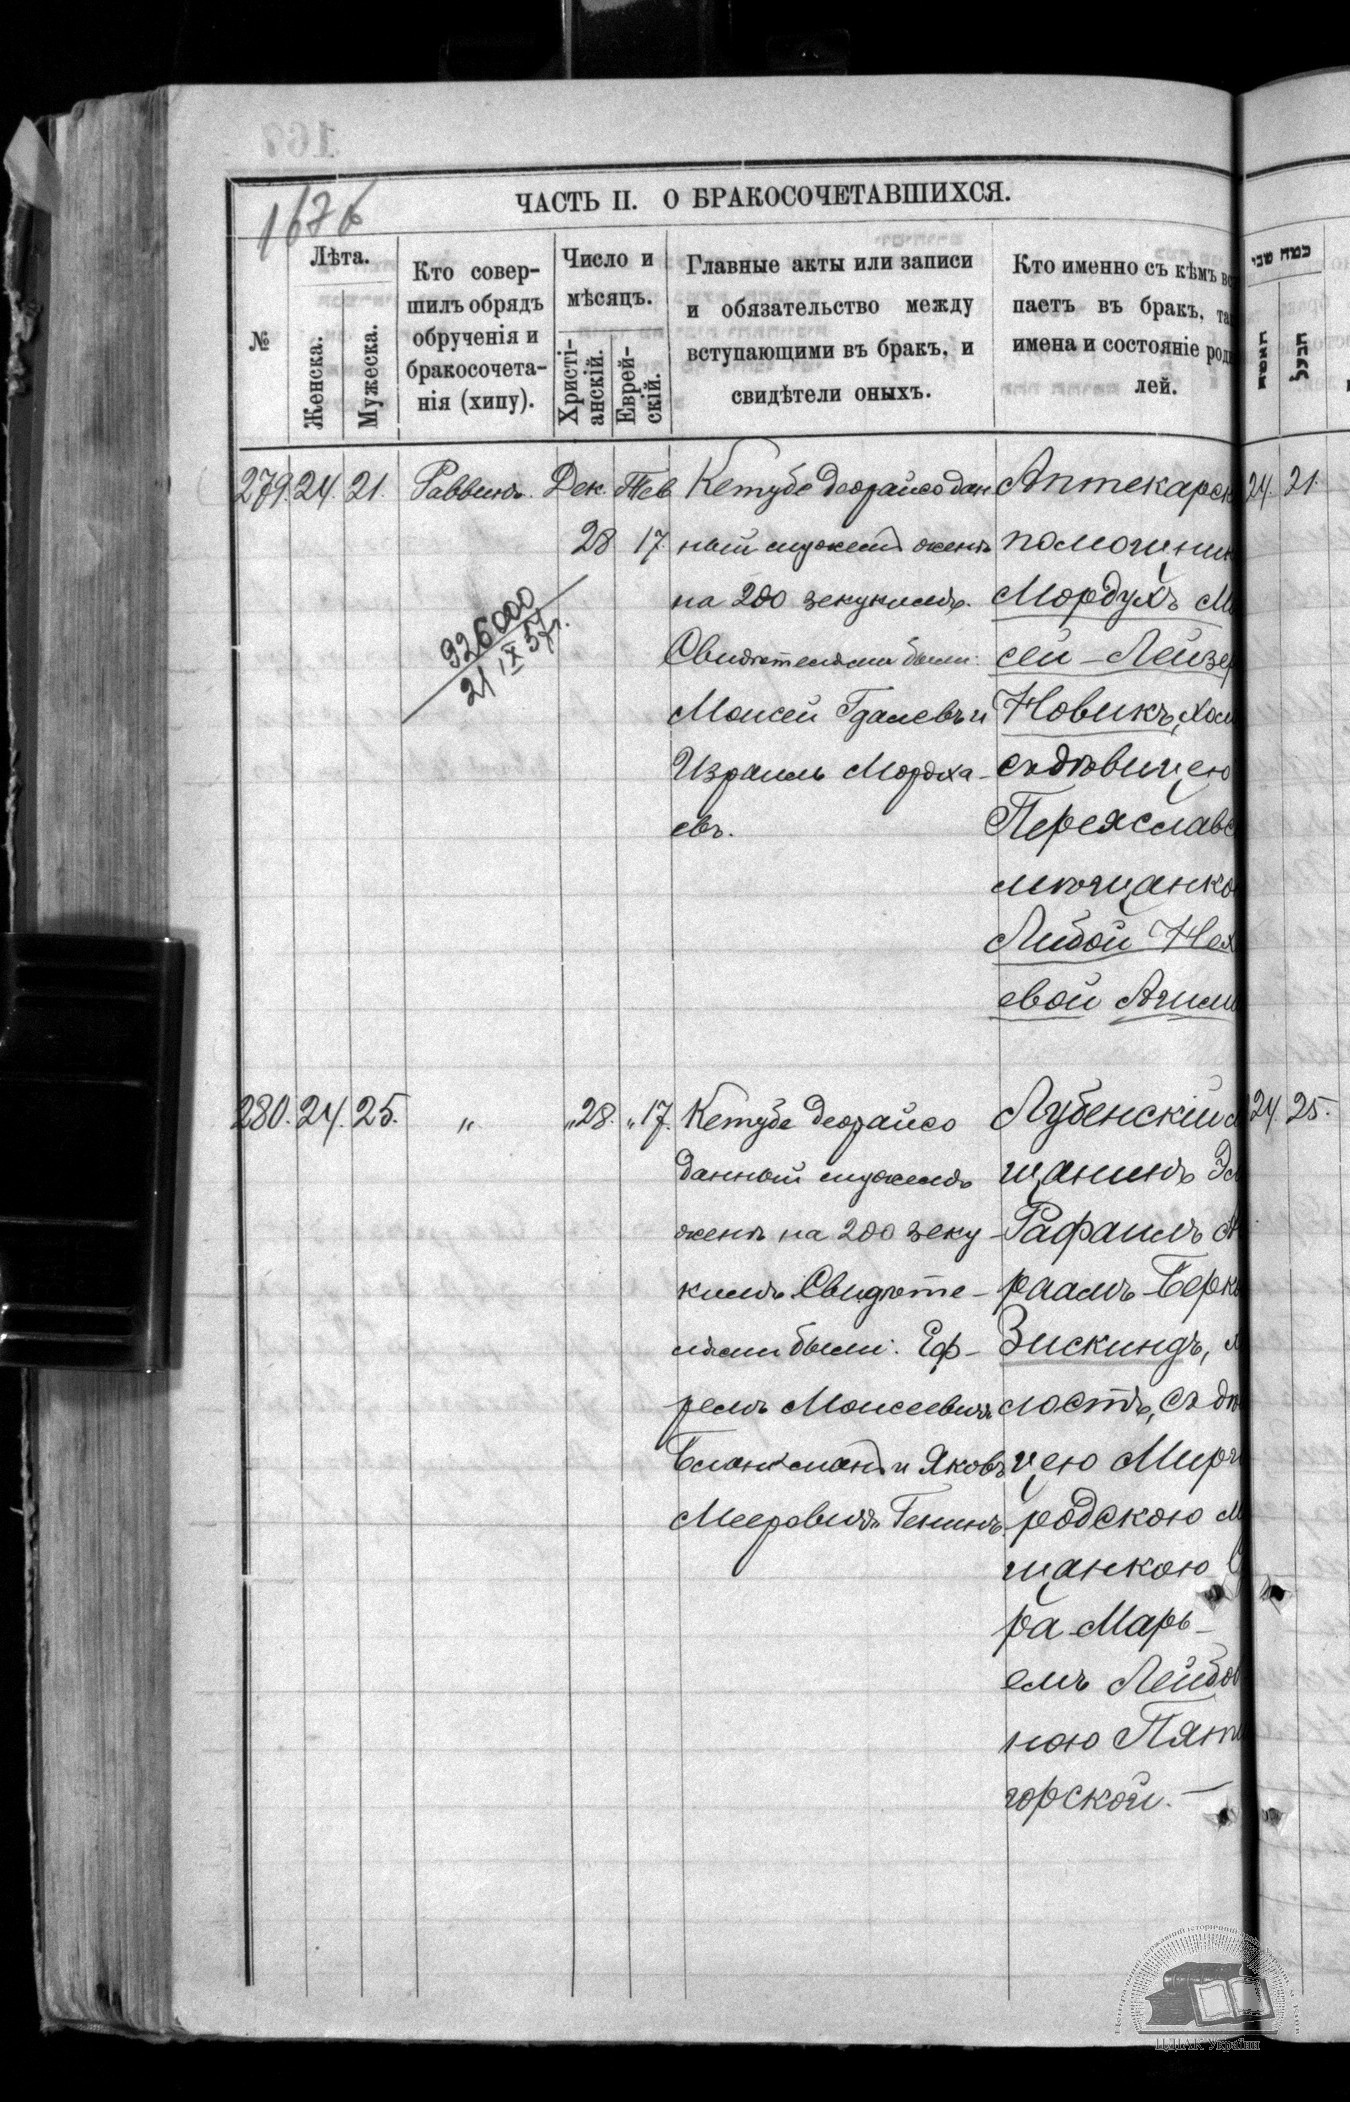 167б
ЧАСТЬ II. О БРАКОСОЧЕТАВШИХСЯ.
№
Лѣта.
Женска.
Мужеска.
Кто совер-
шилъ обрядъ
обрученія и
бракосочета-
нія (хипу).
Число и
мѣсяцъ.
Христі-
анскій.
Еврей-
скій.
Главные акты или записи
и обязательство между
вступающими въ бракъ, и
свидѣтели оныхъ.
Кто именно съ кѣмъ вст
паетъ въ бракъ, та
имена и состояніе роди
лей.
כמה שני
האשה
הבעל
279. 24. 21. Раввинъ. Дек. Тев.
28 17.
Кетубе деорайсо дан
ный мужемъ женѣ
на 200 зекукимъ.
Свидѣтелями были:
Моисей Гдалевъ и
Израиль Мордха-
евъ.
Аптекарск
помощник
Мордухъ М
сей-Лейзер
Новикъ, хол
съ дѣвицею
Переяславс
мѣщанко
Либой Нех
евой
24. 21.
926000
21 IX 57г.
280. 24. 25. " "28. "17.
Кетубе деорайсо
данный мужемъ
женѣ на 200 зеку
кимъ Свидѣте-
лями были: Еф-
ремъ Моисеевичъ
и Яковъ
Мееровичъ Генинъ.
Лубенскій м
щанинъ Эл
Рафаилъ А
раамъ Берк
Зискиндъ, х
лостъ, съ дѣ
цею Мирг
родскою м
щанкою С
ра-Марь-
емъ Лейбов
ною Пяти
горской.—
24. 25.
ЦДІАК України